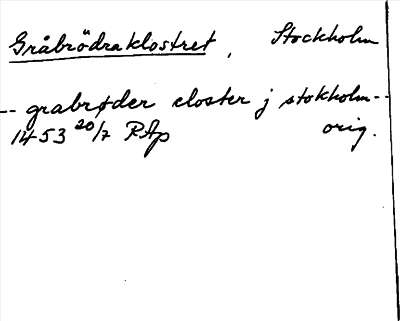 Gråbrödraklostret, Stockholm
-- grabrøder closter j stokholm --
1453 20/7 RAp orig.